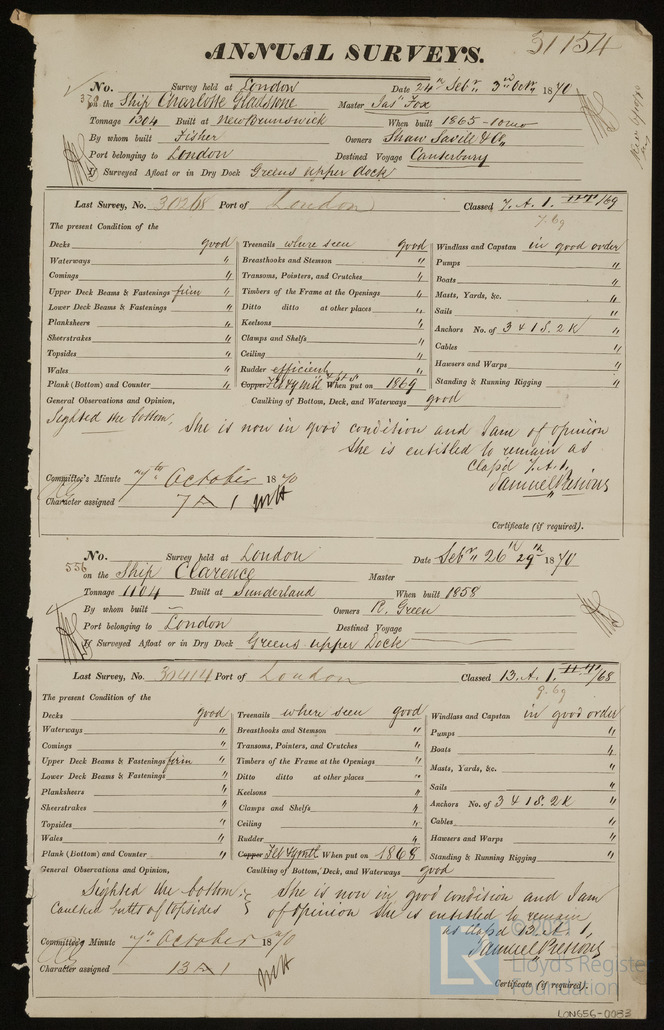 ANNUAL SURVEYS.
31154
No. Survey held at London Date 24th Sebr 3rd Octr 1870
on the Ship Charlotte Gladstone Master Jas Fox
Tonnage 1304 Built at New Brunswick When built 1865-10mo
By whom built Fisher Owners Shaw Savill & Co
Port belonging to London Destined Voyage Canterbury
If Surveyed Afloat or in Dry Dock Greens upper dock
Last Survey, No. 30268 Port of London Classed 7.A.1. /69
7.69
The present Condition of the
Decks good Treenails where seen good Windlass and Capstan in good order
Waterways " Breasthooks and Stemson " Pumps "
Comings " Transoms, Pointers, and Crutches " Boats "
Upper Deck Beams & Fastenings firm " Timbers of the Frame at the Openings " Masts, Yards, &c. "
Lower Deck Beams & Fastenings " Ditto ditto at other places " Sails "
Planksheers " Keelsons " Anchors No. of 3 & 1 S. 2 K "
Sheerstrakes " Clamps and Shelfs " Cables "
Topsides " Ceiling " Hawsers and Warps "
Wales " Rudder efficient Standing & Running Rigging "
Plank (Bottom) and Counter " Copper When put on 1869
General Observations and Opinion, Caulking of Bottom, Deck, and Waterways good
Sighted the bottom. She is now in good condition and I am of opinion
She is entitled to remain as
Clas'd 7.A.1.
Committee's Minute 7th October 1870
Samuel Presious
Character assigned 7 A 1
Certificate (if required).
No. Survey held at London Date Sebr 26th 29th 1870
556 on the Ship Clarence Master
Tonnage 1104 Built at Sunderland When built 1858
By whom built — Owners R. Green
Port belonging to London Destined Voyage
If Surveyed Afloat or in Dry Dock Greens upper Dock
Last Survey, No. 30414 Port of London Classed 13.A.1. /68
9.69
The present Condition of the
Decks good Treenails where seen good Windlass and Capstan in good order
Waterways " Breasthooks and Stemson " Pumps "
Comings " Transoms, Pointers, and Crutches " Boats "
Upper Deck Beams & Fastenings firm " Timbers of the Frame at the Openings " Masts, Yards, &c. "
Lower Deck Beams & Fastenings " Ditto ditto at other places " Sails "
Planksheers " Keelsons " Anchors No. of 3 & 1 S. 2 K "
Sheerstrakes " Clamps and Shelfs " Cables "
Topsides " Ceiling " Hawsers and Warps "
Wales " Rudder " Standing & Running Rigging "
Plank (Bottom) and Counter " Copper Felt & ymtl When put on 1868
General Observations and Opinion, Caulking of Bottom, Deck, and Waterways good
Sighted the bottom. She is now in good condition and I am
Caulked butts of topsides of opinion She is entitled to remain
as Clas'd 13.A.1.
Committee's Minute 7th October 1870
Samuel Presious
Character assigned 13 A 1
Certificate (if required).
© 2021
LR Lloyd's Register
Foundation
LON656-0033